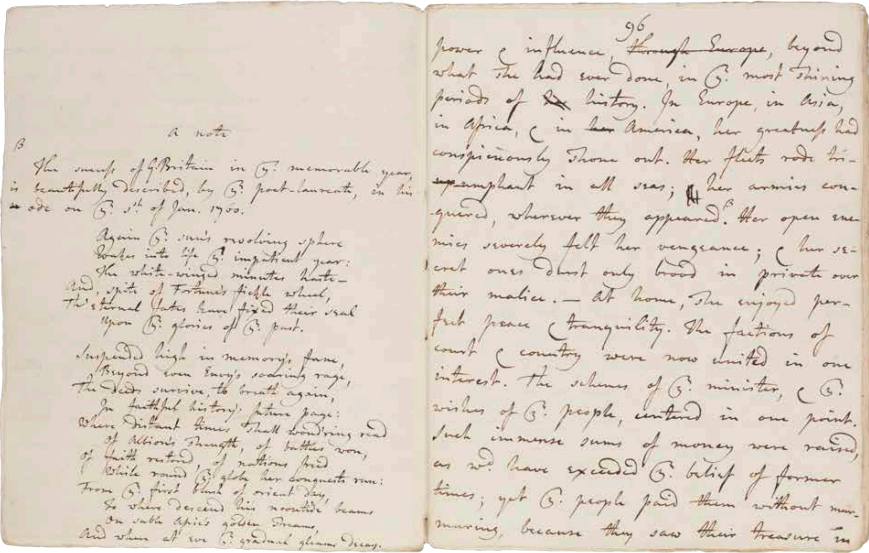 A note
B
The success of G. Britain in yͤ. memorable year,
is beautifully described, by yͤ. poet-laureate, in his
ode on yͤ. 5th. of Jan. 1760.
Again yͤ. sun's revolving sphere
Wakes into life yͤ. impatient year:
The white-winged minutes haste—
And, spite of Fortune's fickle wheel,
Th' eternal fates have fixed their seal
Upon yͤ. glories of yͤ. past.
Suspended high in memory's fane,
Beyond even Envy's soaring rage,
The deeds survive, to breath again,
In faithful history's future page:
Where distant times shall wond'ring read
Of Albion's strength, of battles won,
Of faith restored of nations freed
While round yͤ. globe her conquests run:
From yͤ. first blush of orient day,
To where descend his noontide beams
On sable Afric's golden streams,
And where at eve yͤ. gradual gleams decay.
96
power & influence, through Europe, beyond
what she had ever done, in yͤ. most shining
periods of history. In Europe, in Asia,
in Africa, & in her America, her greatness had
conspicuously shone out. Her fleets rode tri-
umphant in all seas; & her armies con-
quered, wherever they appeared. B Her open ene-
mies severely felt her vengeance; & her se-
cret ones durst only brood in private over
their malice. — At home, she enjoyed per-
fect peace & tranquility. The factions of
court & country were now united in one
interest. The schemes of yͤ. minister, & yͤ.
wishes of yͤ. people, centered in one point.
Such immense sums of money were raised,
as wd have exceeded yͤ. belief of former
times; yet yͤ. people paid them without mur-
muring, because they saw their treasure in